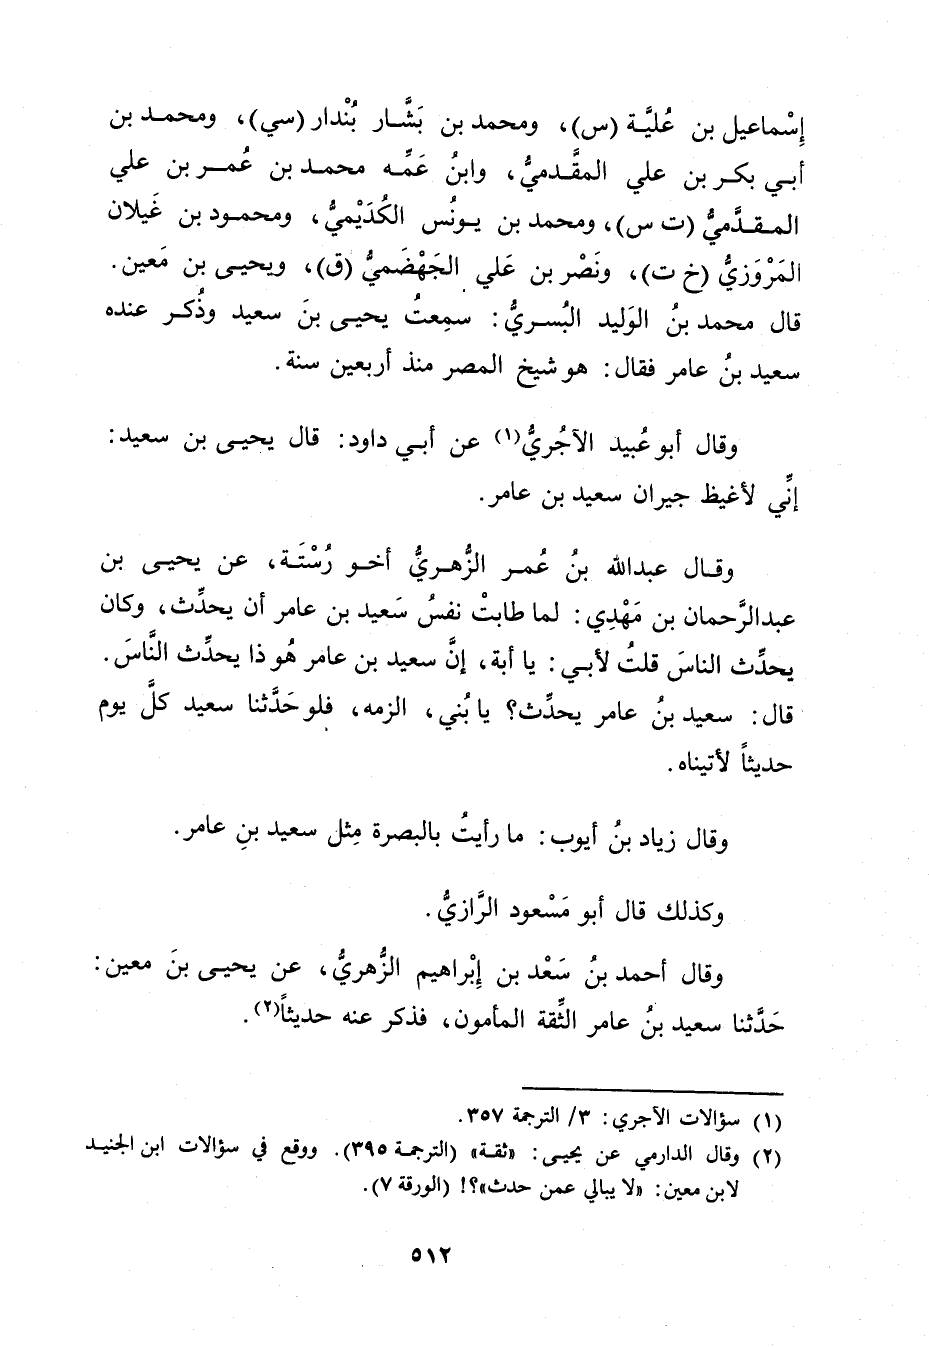 إِسْماعيل بن عُليَّة (س)، ومحمد بن بَشَّار بُنْدار (سي)، ومحمد بن
أبي بكر بن علي المقَّدميُّ، وابنُ عَمِّه محمد بن عُمر بن علي
المقدَّميُّ (ت س)، ومحمد بن يونُس الكُدَيْميُّ، ومحمود بن غَيلان
المَرْوَزيُّ (خ ت)، ونَصْر بن عَلي الجَهْضَميُّ (ق)، ويحيى بن مَعين.
قال محمد بنُ الوَليد البُسريُّ: سمِعتُ يحيى بنَ سعيد وذُكر عنده
سعيد بنُ عامر فقال: هو شيخ المصر منذ أربعين سنة.
وقال أبو عُبيد الآجُريُّ(١) عن أبي داود: قال يحيى بن سعيد:
إنِّي لأغيظ جيران سعيد بن عامر.
وقال عبدالله بنُ عُمر الزُّهريُّ أخو رُسْتَة، عن يحيى بن
عبدالرَّحمان بن مَهْدِي: لما طابتْ نفسُ سَعيد بن عامر أن يحدِّث، وكان
يحدِّث الناسَ قلتُ لأبي: يا أبة، إنَّ سعيد بن عامر هُو ذا يحدِّث النَّاسَ.
قال: سعيد بنُ عامر يحدِّث؟ يا بُني، الزمه، فلو حَدَّثنا سعيد كلَّ يوم
حديثاً لأتيناه.
وقال زياد بنُ أيوب: ما رأيتُ بالبصرة مِثل سعيد بنِ عامر.
وكذلك قال أبو مَسْعود الرَّازيُّ.
وقال أحمد بنُ سَعْد بن إِبْراهيم الزُّهريُّ، عن يحيى بنَ معين:
حَدَّثنا سعيد بنُ عامر الثِّقة المأمون، فذكر عنه حديثاً(٢).
(١) سؤالات الآجري: ٣/ الترجمة ٣٥٧.
(٢) وقال الدارمي عن يحيى: «ثقة» (الترجمة ٣٩٥). ووقع في سؤالات ابن الجنيد
لابن معين: «لا يبالي عمن حدث»؟! (الورقة ٧).
٥١٢